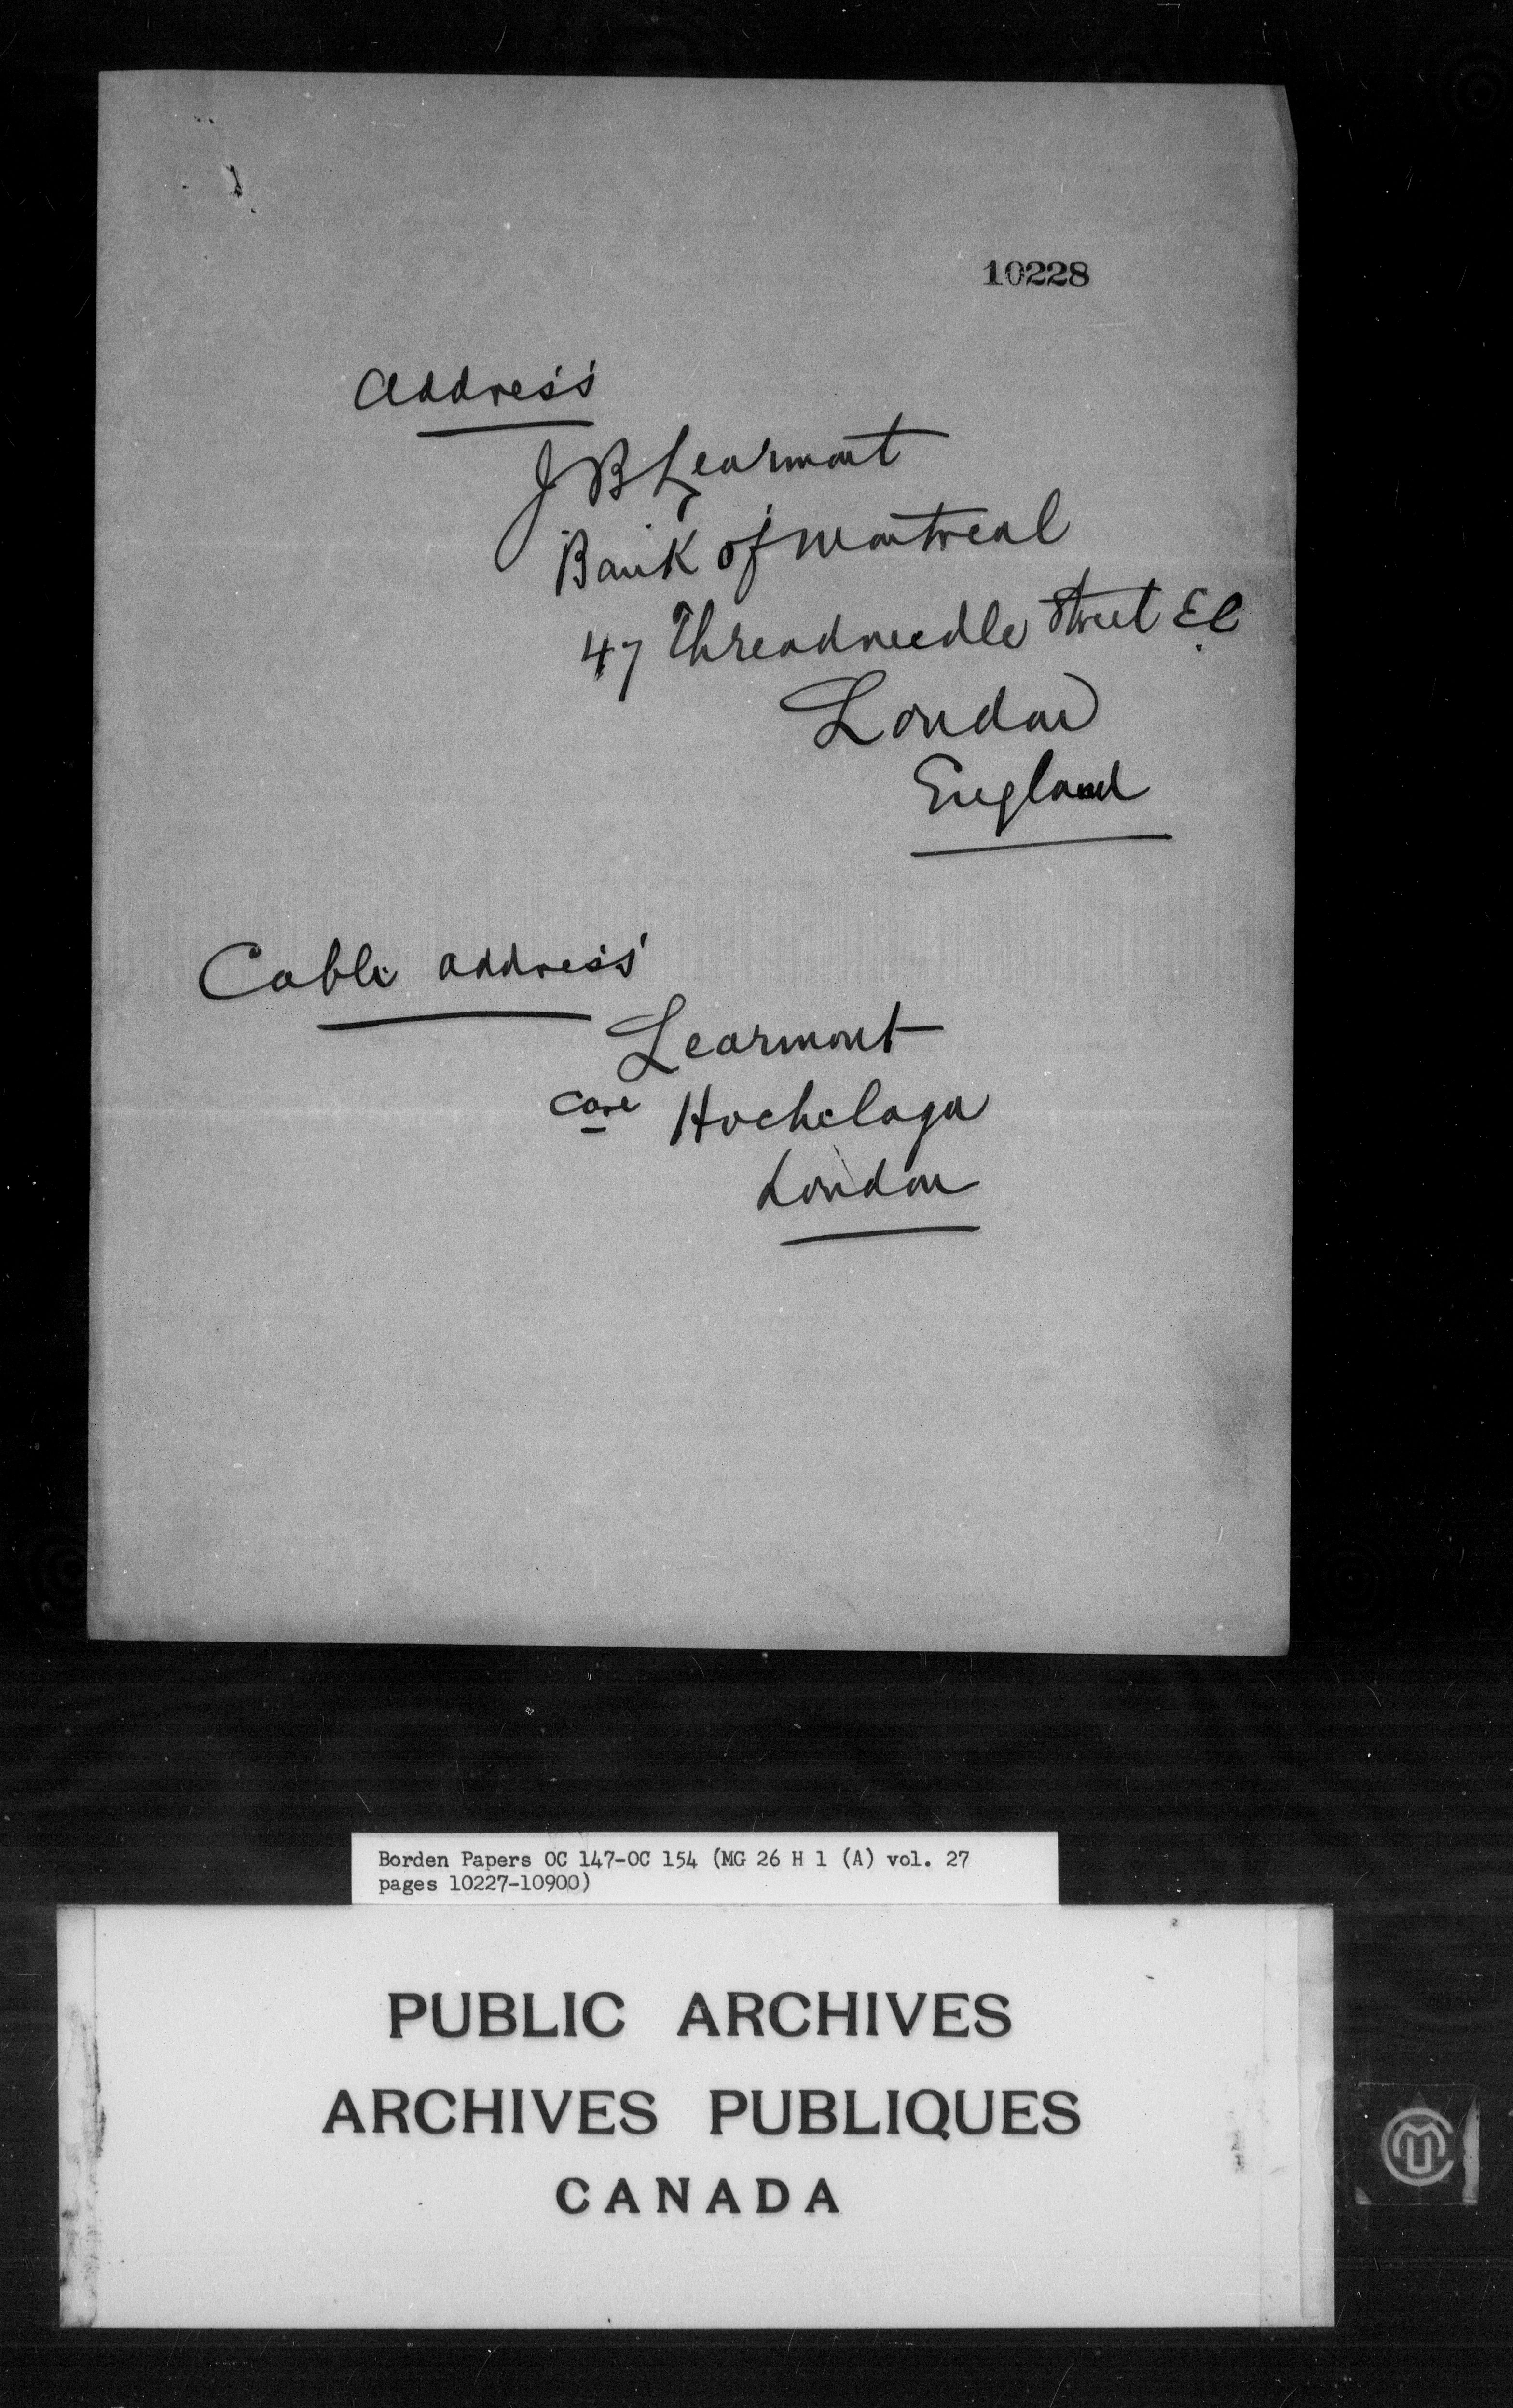 10228
Address
J B Learmont
Bank of Montreal
47 Threadneedle Street E.C
London
England
Cable address
Learmont
care Hochelaga
London
Borden Papers OC 147-OC 154 (MG 26 H 1 (A) vol. 27
pages 10227-10900)
PUBLIC ARCHIVES
ARCHIVES PUBLIQUES
CANADA